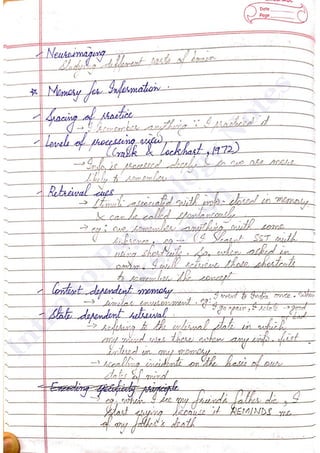 Date
Page
- Neuroimaging
Study of different parts of brain
* Memory for Information.
- Spacing of practice
→ I remember anything ∵ I practiced it
- Levels of processing view
(Craik & Lockhart, 1972)
→ Info is processed deeply & so we are more
likely to remember
- Retrieval cues
→ stimuli associated with info stored in memory
& can be called spontaneously
→ eg: we remember anything with some
reference, eg → (I learnt SST with
using shortcuts. So, when asked in
exam, I will retrieve those shortcuts
to remember the concept
- Context dependent memory
→ similar environment. eg: I went to India once. When
I go again, I relate
- State dependent retrieval
→ referring to the internal state in which
my mind was there when any info. first
entered in my memory
→ recalling incidents on the basis of our
state of mind
- Encoding specificity principle
→ eg, when I see my friend's father die, I
start crying because it REMINDS me
of my father's death